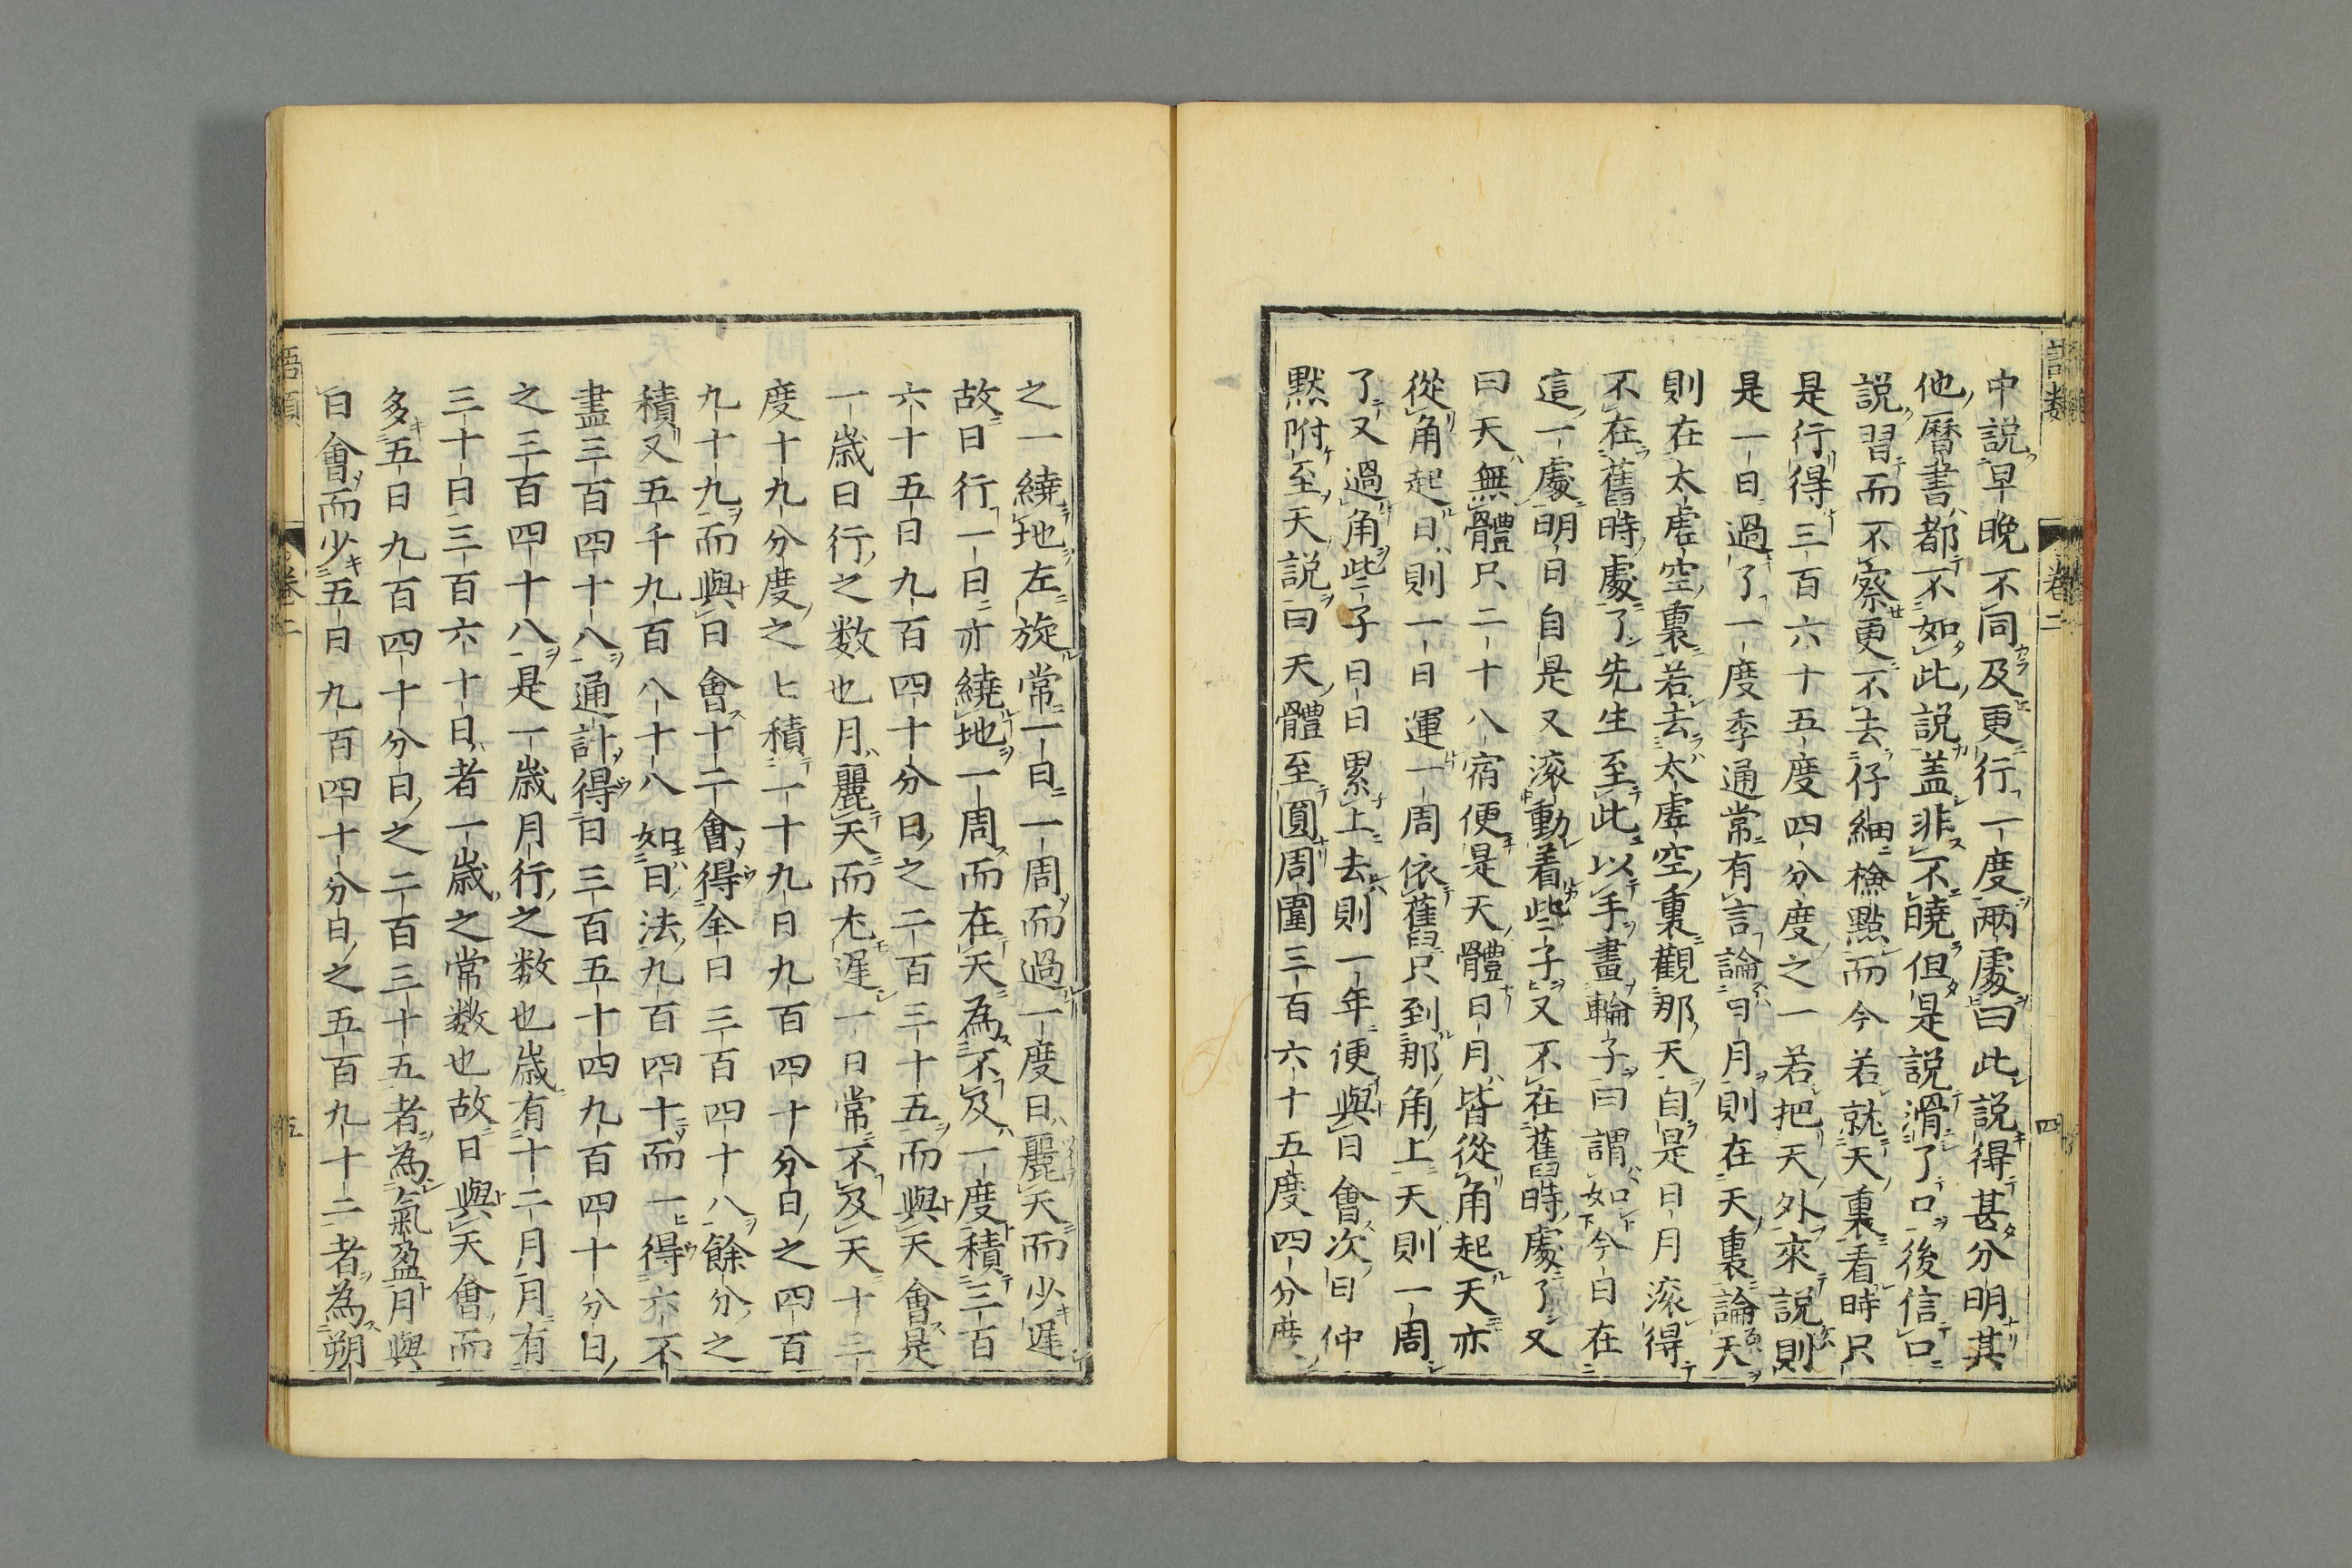 語類
卷二
四
中説早晩不同及更行一度兩處曰此説得甚分明其
他曆書都不如此説盖非不曉但是説滑了口後信口
説習而不察更不去仔細檢點而今若就天裏看時只
是行得三百六十五度四分度之一若把天外來説則
是一日過了一度季通常有言論日月則在天裏論天
則在太虚空裏若去太虚空裏觀那天自是日月滚得
不在舊時處了先生至此以手畫輪子曰謂如今日在
這一處明日自是又滚動着些子又不在舊時處了又
曰天無體只二十八宿便是天體日月皆從角起天亦
從角起日則一日運一周依舊只到那角上天則一周
了又過角些子日日累上去則一年便與日會次日仲
黙附至天説曰天體至圓周圍三百六十五度四分度
之一繞地左旋常一日一周而過一度日麗天而少遲
故日行一日亦繞地一周而在天為不及一度積三百
六十五日九百四十分日之二百三十五而與天會是
一歳日行之数也月麗天而尤遲一日常不及天十三
度十九分度之七積二十九日九百四十分日之四百
九十九而與日會十二會得全日三百四十八餘分之
積又五千九百八十八如日法九百四十而一得六不
盡三百四十八通計得日三百五十四九百四十分日
之三百四十八是一歳月行之数也歳有十二月月有
三十日三百六十日者一歳之常数也故日與天會而
多五日九百四十分日之二百三十五者為氣盈月與
日會而少五日九百四十分日之五百九十二者為朔
語類
卷二
五